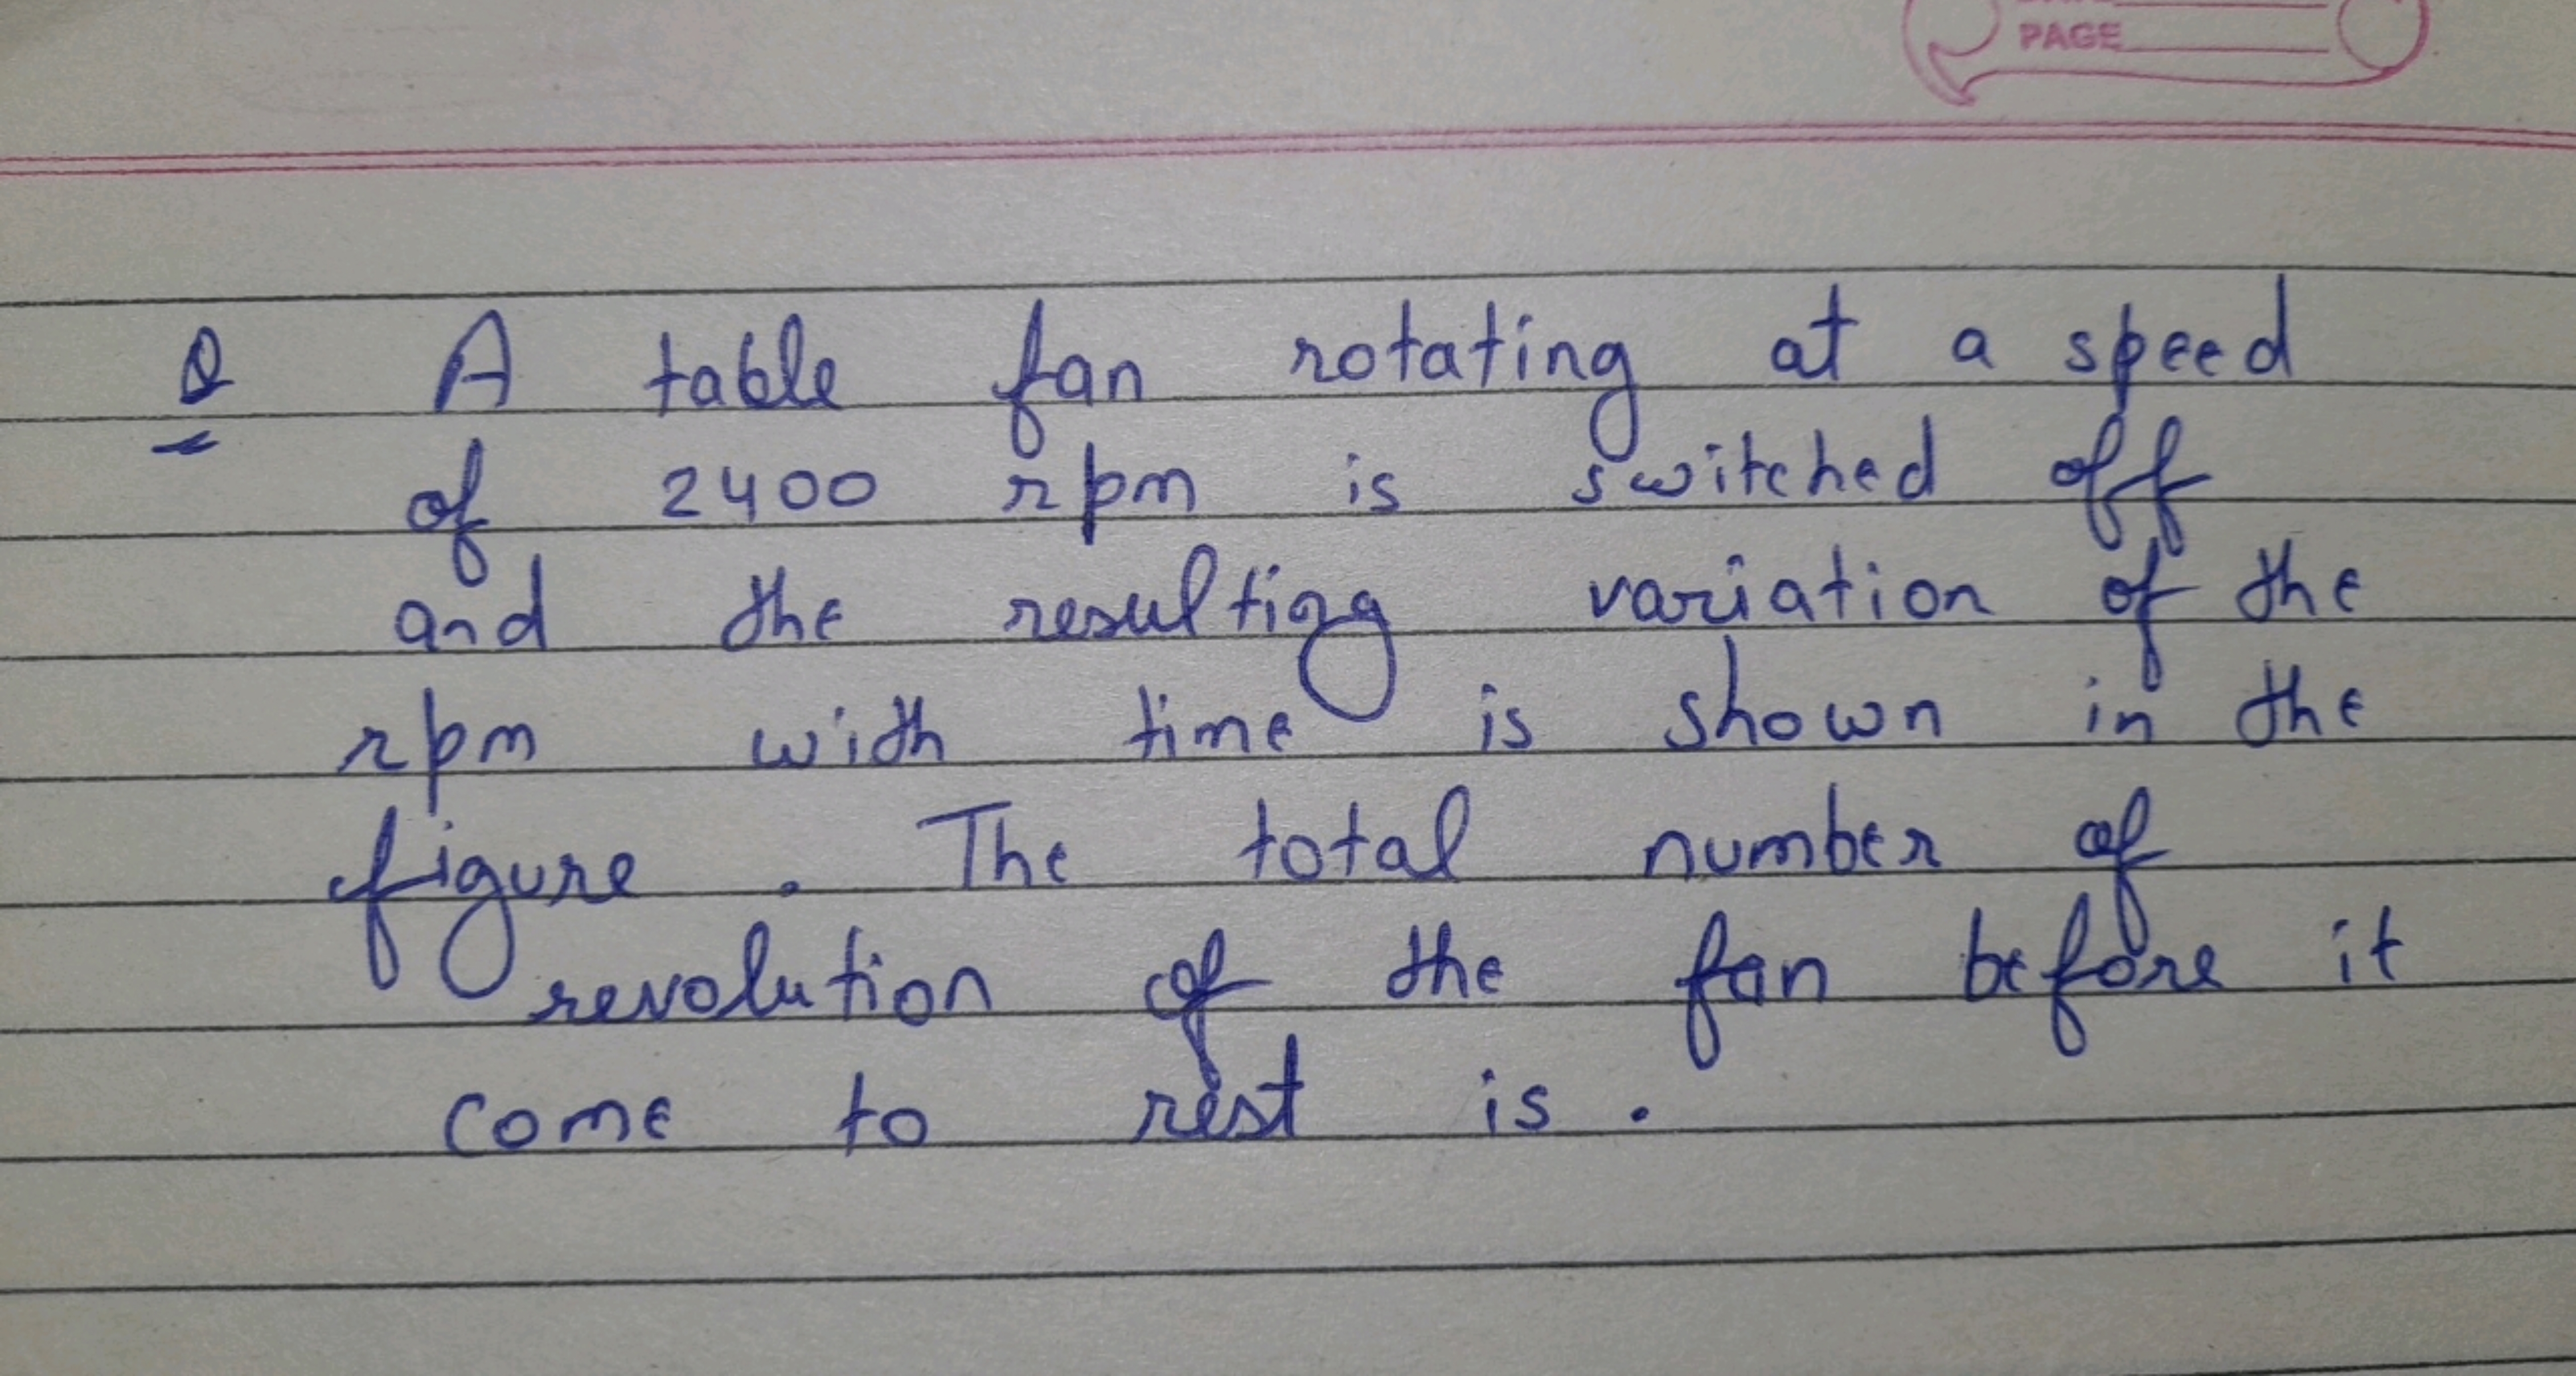 PAGE
Q A table fan rotating at a speed
of 2400 rpm is switched off
and the resulting variation of the
rpm with time is shown in the
figure . The total number of
revolution of the fan before it
come to rest is .